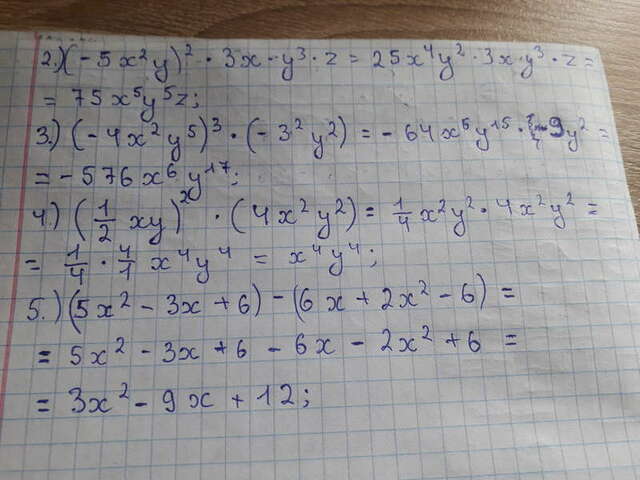 2.) (-5x²y)² · 3x · y³ · z = 25x⁴y² · 3x · y³ · z =
= 75x⁵y⁵z;
3.) (-4x²y⁵)³ · (-3²y²) = -64x⁶y¹⁵ · 9y² =
= -576x⁶y¹⁷;
4.) (1/2 xy)² · (4x²y²) = 1/4 x²y² · 4x²y² =
= 1/4 · 4/1 x⁴y⁴ = x⁴y⁴;
5.) (5x² - 3x + 6) - (6x + 2x² - 6) =
= 5x² - 3x + 6 - 6x - 2x² + 6 =
= 3x² - 9x + 12;